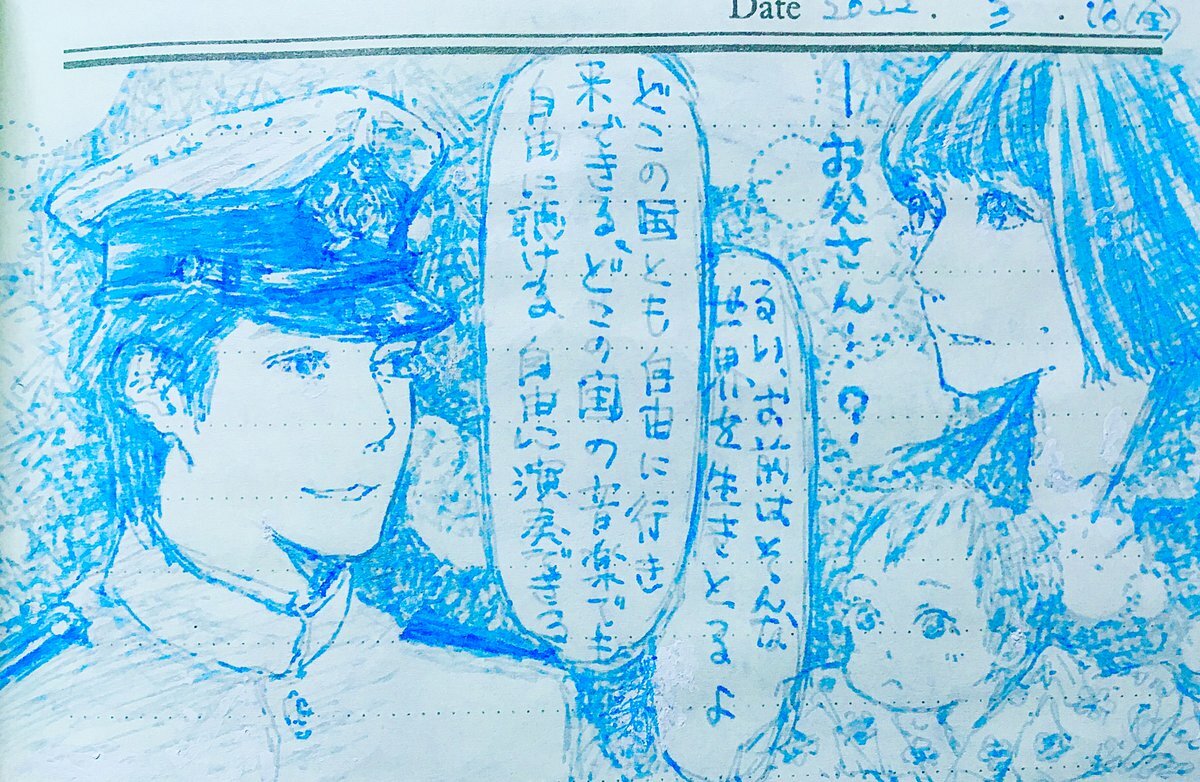 Date 2022.3.18(金)
どこの国とも自由に行き
来できる。どこの国の音楽でも
自由に聴ける 自由に演奏できる
るいお前はそんな
世界を生きとるよ
―お父さん…?